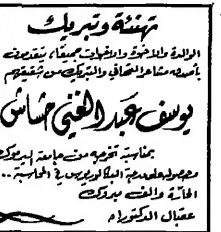 تهنئة وتبريك
الوالدة والاخوة والاخوات جميعاً، يتقدمون
بأصدق مشاعر التهاني والتبريك من شقيقهم
يوسف عبد الغني حشاش
بمناسبة تخرجه من جامعة اليرموك
وحصوله على درجة البكالوريوس في المحاسبة..
الف مبروك
عقبال الدكتوراه